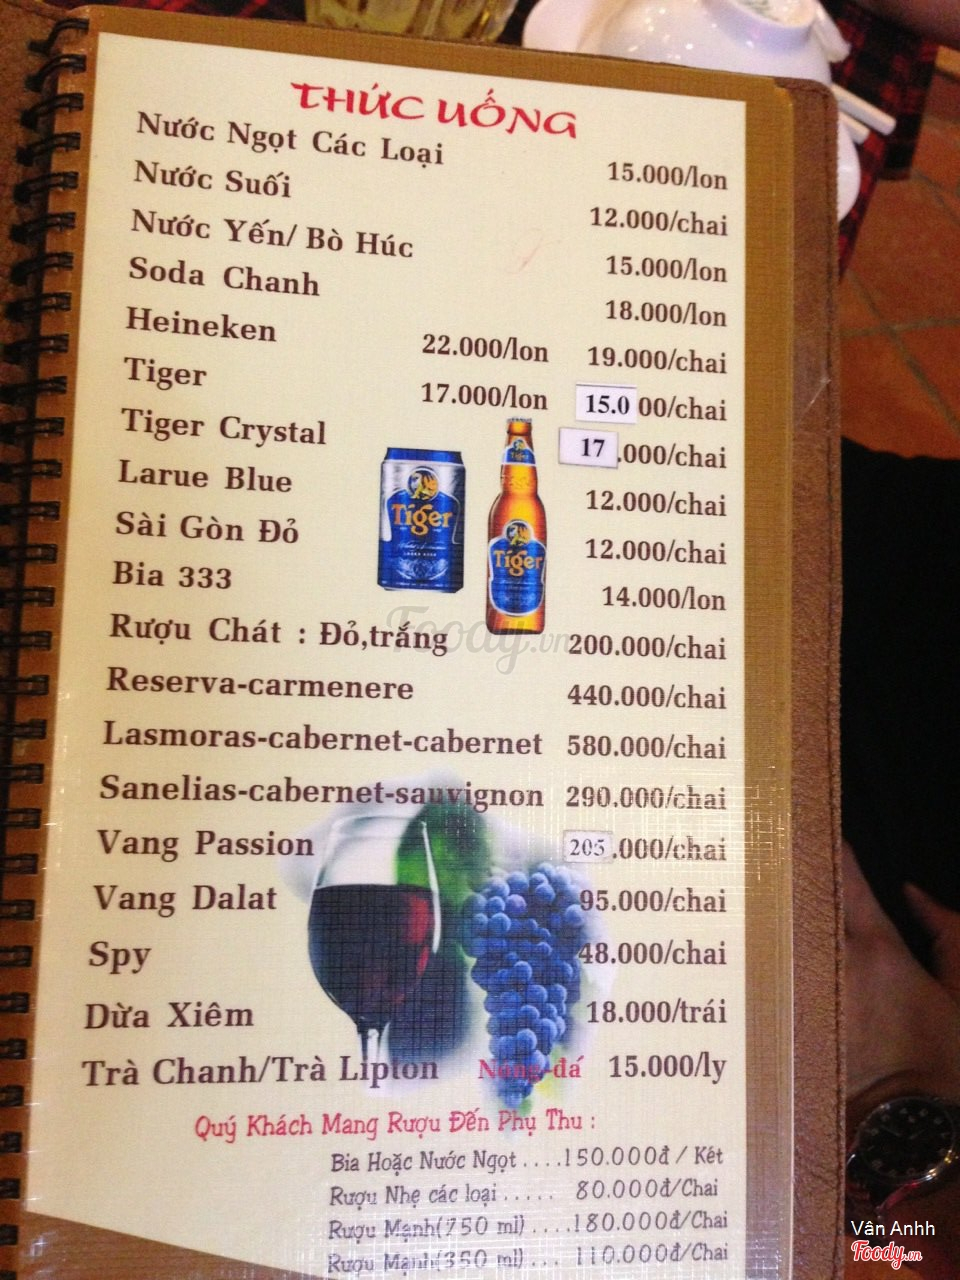 THỨC UỐNG
Nước Ngọt Các Loại 15.000/lon
Nước Suối 12.000/chai
Nước Yến/ Bò Húc 15.000/lon
Soda Chanh 18.000/lon
Heineken 22.000/lon 19.000/chai
Tiger 17.000/lon 15.000/chai
Tiger Crystal 17.000/chai
Larue Blue 12.000/chai
Sài Gòn Đỏ 12.000/chai
Bia 333 14.000/lon
Rượu Chát : Đỏ,trắng 200.000/chai
Reserva-carmenere 440.000/chai
Lasmoras-cabernet-cabernet 580.000/chai
Sanelias-cabernet-sauvignon 290.000/chai
Vang Passion 205.000/chai
Vang Dalat 95.000/chai
Spy 48.000/chai
Dừa Xiêm 18.000/trái
Trà Chanh/Trà Lipton Nóng-đá 15.000/ly
Quý Khách Mang Rượu Đến Phụ Thu :
Bia Hoặc Nước Ngọt ....150.000đ / Két
Rượu Nhẹ các loại ..... 80.000đ/Chai
Rượu Mạnh(750 ml) ....180.000đ/Chai
Rượu Mạnh(350 ml) .... 110.000đ/Chai
Tiger
Tiger
Tiger
Foody.vn
Vân Anhh
Foody.vn